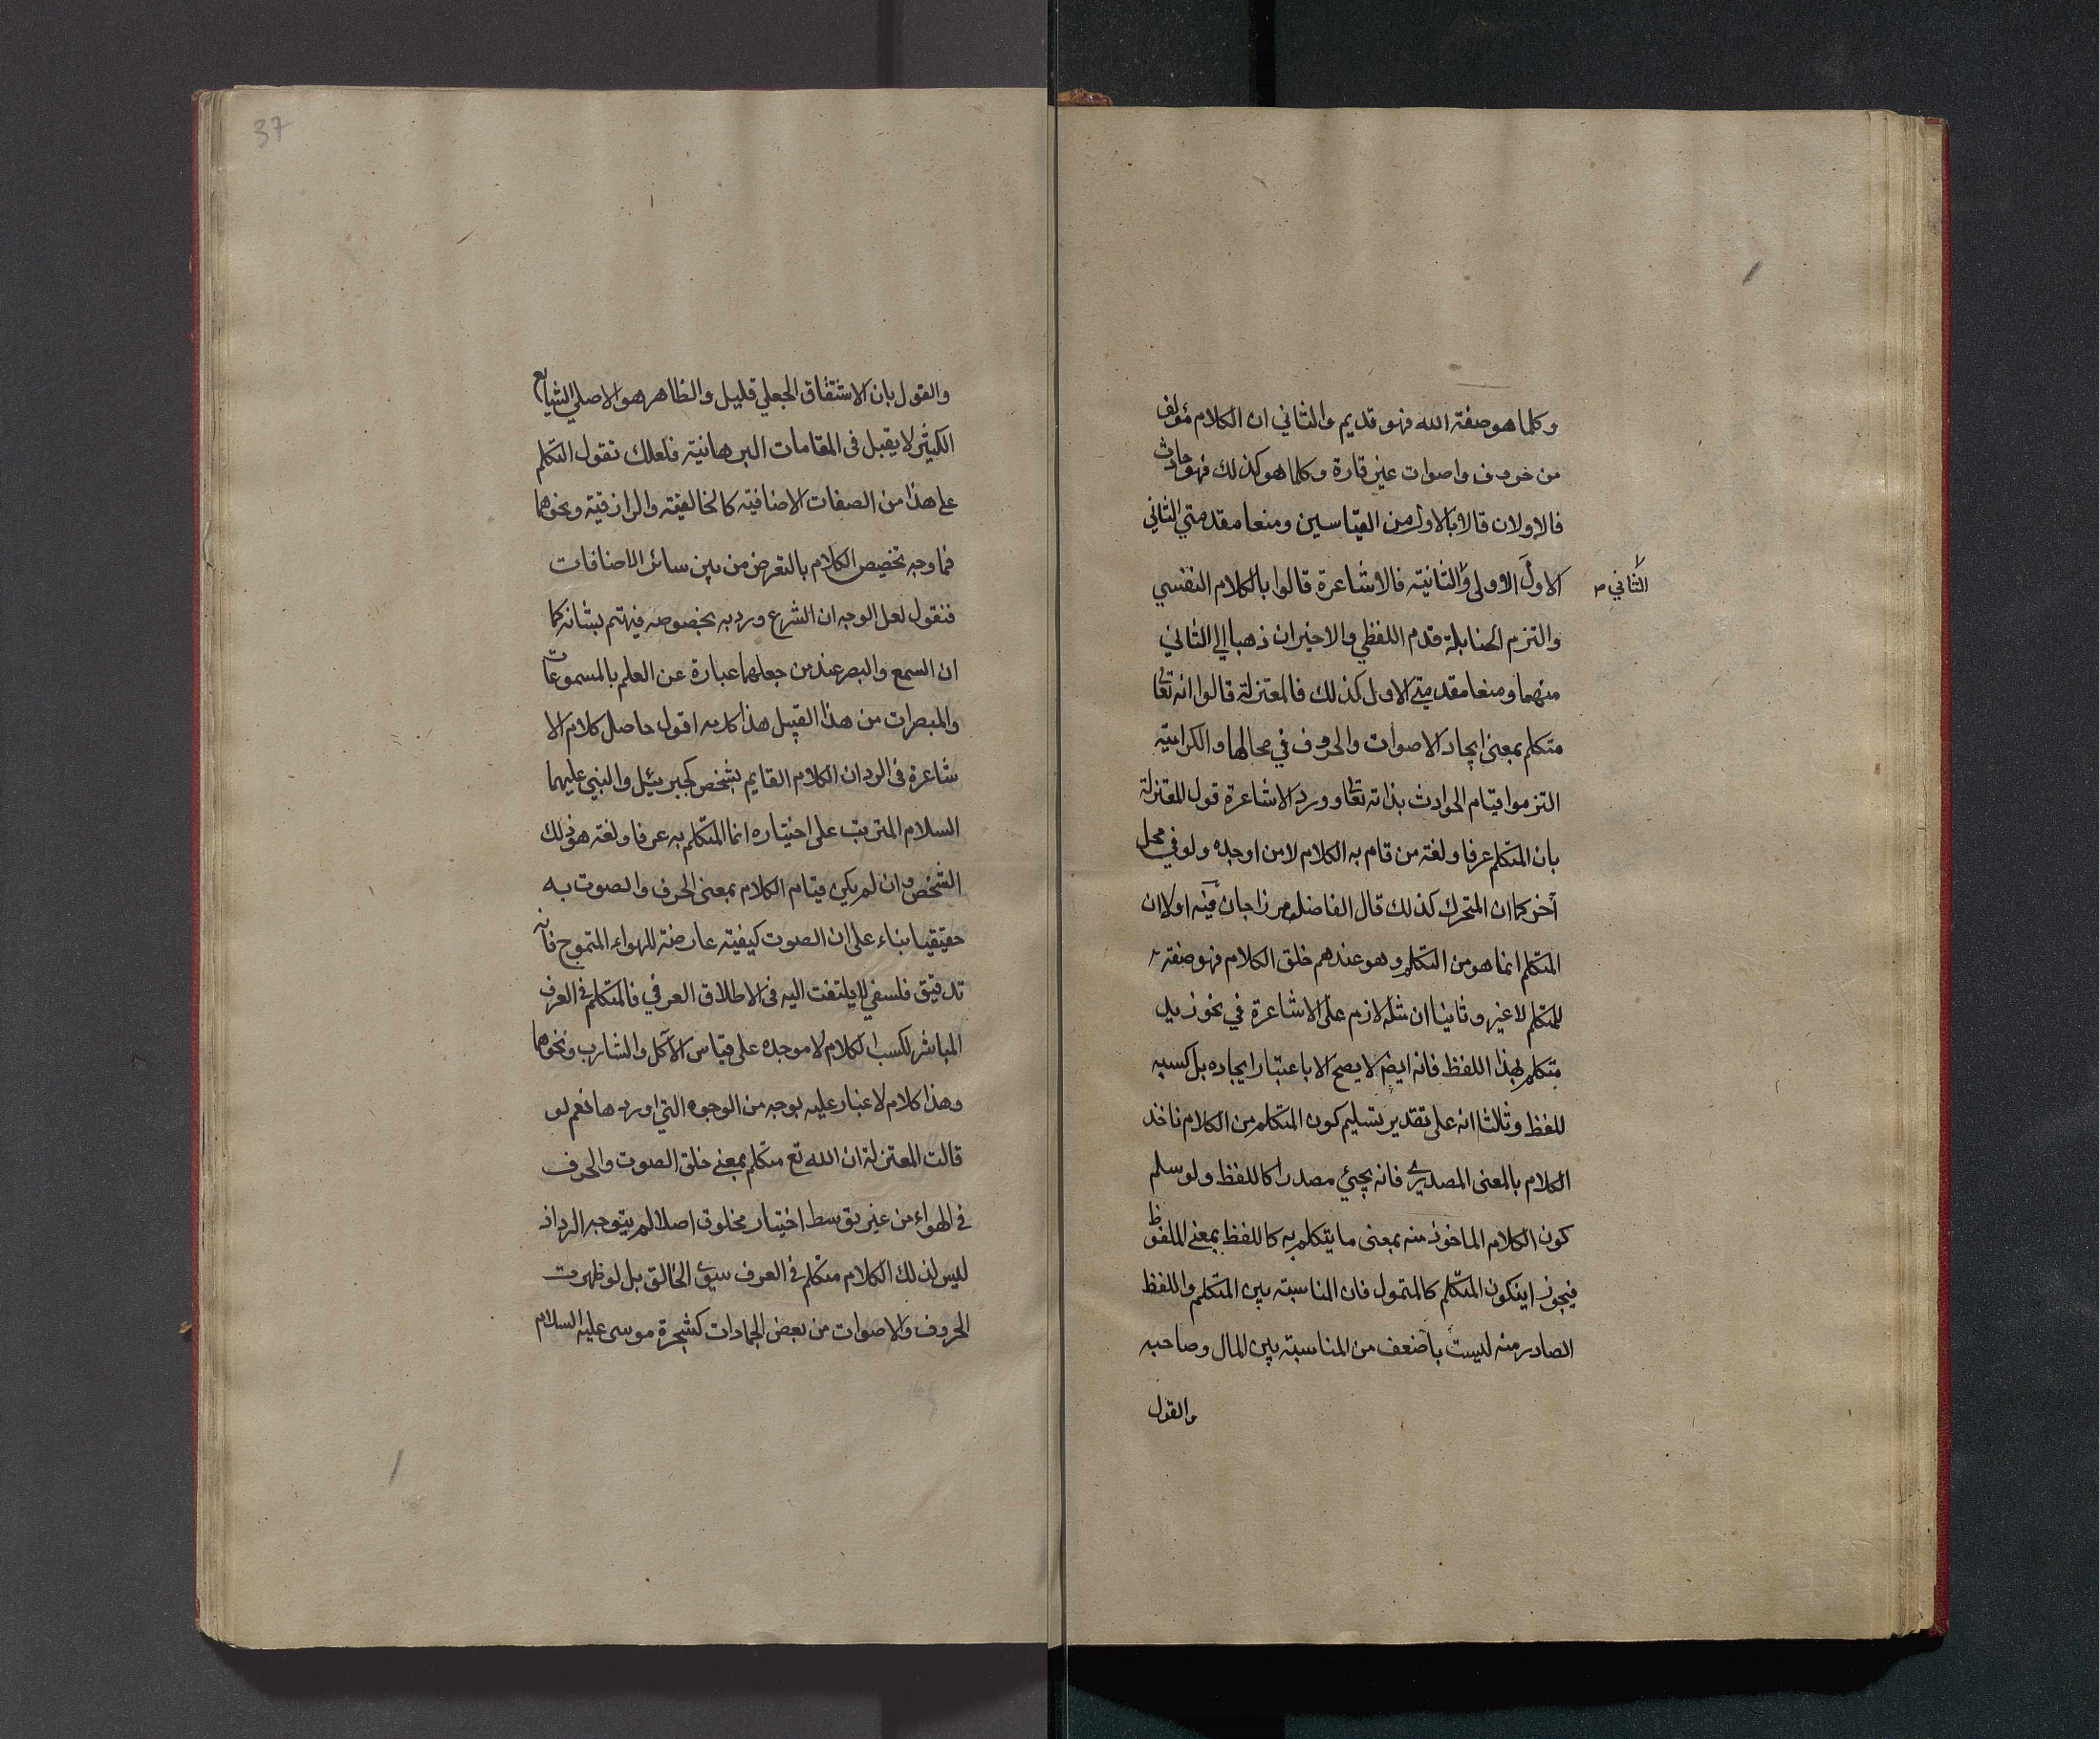 وكلما هو صفة الله فهو قديم والثاني ان الكلام مؤلف
من حروف واصوات غير قارة وكلما هو كذلك فهو حادث
فالاولان قالا بالاول من القياسين ومنعا مقدمتي الثاني
الاول الاولى والثانية فالاشاعرة قالوا بالكلام النفسي
الثاني
والتزم الحنابلة قدم اللفظي والاخيران ذهبا الي الثاني
منهما ومنعا مقدمتي الاول كذلك فالمعتزلة قالوا انه تعا
متكلم بمعنى ايجاد الاصوات والحروف في محالها والكرامية
التزموا قيام الحوادث بذاته تعا وورد الاشاعرة قول المعتزلة
بان المتكلم عرفا ولغة من قام به الكلام لا من اوجده ولو في محل
آخر كما ان المتحرك كذلك قال الفاضل مرزاجان فيه اولا ان
المتكلم انما هو من التكلم وهو عندهم خلق الكلام فهو صفة
للمتكلم لا غير وثانيا ان مثله لازم على الاشاعرة في نحو زيد
متكلم بهذا اللفظ فانه ايض لا يصح الا باعتبار ايجاده بل كسبه
للفظ وثلثا انه على تقدير تسليم كون المتكلم من الكلام ناخذ
الكلام بالمعنى المصدري فانه يجئ مصدرا كاللفظ ولو سلم
كون الكلام الماخوذ منه بمعنى ما يتكلم به كاللفظ بمعنى الملفوظ
فيجوز اينكون المتكلم كالمتمول فان المناسبة بين المتكلم واللفظ
الصادر منه ليست باضعف من المناسبة بين المال وصاحبه
والقول
37
والقول بان الاشتقاق الجعلي قليل والظاهر هو الاصلي الشايع
الكثير لا يقبل في المقامات البرهانية فلعلك تقول التكلم
على هذا من الصفات الاضافية كالخالقية والرازقية ونحوهما
فما وجه تخصيص الكلام بالتعرض من بين سائر الاضافات
فنقول لعل الوجه ان الشرع ورد به بخصوصه فيهتم بشانه كما
ان السمع والبصر عند من جعلهما عبارة عن العلم بالمسموعات
والمبصرات من هذا القبيل هذا كلامه اقول حاصل كلام الا
شاعرة في الرد ان الكلام القايم بشخص كجبرئيل والنبي عليهما
السلام المترتب على اختياره انما المتكلم به عرفا ولغة هو ذلك
الشخص وان لم يكن قيام الكلام بمعنى الحرف والصوت به
حقيقيا بناء على ان الصوت كيفية عارضة للهواء المتموج فانه
تدقيق فلسفي لا يلتفت اليه في الاطلاق العرفي فالمتكلم في العرف
المباشر لكسب الكلام لا موجده على قياس الآكل والشارب ونحوهما
وهذا كلام لا غبار عليه بوجه من الوجوه التي اوردها نعم لو
قالت المعتزلة ان الله تع متكلم بمعنى خلق الصوت والحرف
في الهواء من غير توسط اختيار مخلوق اصلا لم يتوجه الرد اذ
ليس لذلك الكلام متكلم في العرف سوى الخالق بل لو ظهرت
الحروف والاصوات من بعض الجمادات كشجرة موسى عليه السلام